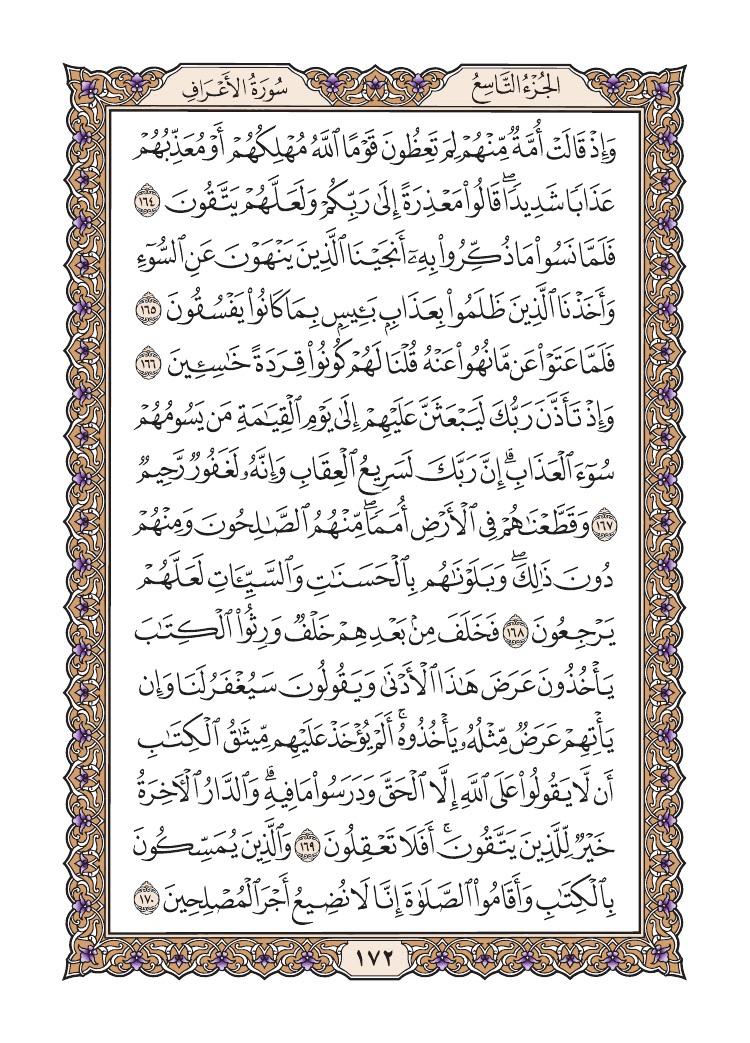 الجُزْءُ التَّاسِعُ
سُورَةُ الأَعْرَافِ
وَإِذْ قَالَتْ أُمَّةٌ مِّنْهُمْ لِمَ تَعِظُونَ قَوْمًا ٱللَّهُ مُهْلِكُهُمْ أَوْ مُعَذِّبُهُمْ
عَذَابًا شَدِيدًاۖ قَالُوا۟ مَعْذِرَةً إِلَىٰ رَبِّكُمْ وَلَعَلَّهُمْ يَتَّقُونَ ١٦٤
فَلَمَّا نَسُوا۟ مَا ذُكِّرُوا۟ بِهِۦٓ أَنجَيْنَا ٱلَّذِينَ يَنْهَوْنَ عَنِ ٱلسُّوٓءِ
وَأَخَذْنَا ٱلَّذِينَ ظَلَمُوا۟ بِعَذَابٍۭ بَـِٔيسٍۭ بِمَا كَانُوا۟ يَفْسُقُونَ ١٦٥
فَلَمَّا عَتَوْا۟ عَن مَّا نُهُوا۟ عَنْهُ قُلْنَا لَهُمْ كُونُوا۟ قِرَدَةً خَـٰسِـِٔينَ ١٦٦
وَإِذْ تَأَذَّنَ رَبُّكَ لَيَبْعَثَنَّ عَلَيْهِمْ إِلَىٰ يَوْمِ ٱلْقِيَـٰمَةِ مَن يَسُومُهُمْ
سُوٓءَ ٱلْعَذَابِۗ إِنَّ رَبَّكَ لَسَرِيعُ ٱلْعِقَابِ وَإِنَّهُۥ لَغَفُورٌ رَّحِيمٌ
١٦٧ وَقَطَّعْنَـٰهُمْ فِى ٱلْأَرْضِ أُمَمًاۖ مِّنْهُمُ ٱلصَّـٰلِحُونَ وَمِنْهُمْ
دُونَ ذَٰلِكَۖ وَبَلَوْنَـٰهُم بِٱلْحَسَنَـٰتِ وَٱلسَّيِّـَٔاتِ لَعَلَّهُمْ
يَرْجِعُونَ ١٦٨ فَخَلَفَ مِنۢ بَعْدِهِمْ خَلْفٌ وَرِثُوا۟ ٱلْكِتَـٰبَ
يَأْخُذُونَ عَرَضَ هَـٰذَا ٱلْأَدْنَىٰ وَيَقُولُونَ سَيُغْفَرُ لَنَا وَإِن
يَأْتِهِمْ عَرَضٌ مِّثْلُهُۥ يَأْخُذُوهُۚ أَلَمْ يُؤْخَذْ عَلَيْهِم مِّيثَـٰقُ ٱلْكِتَـٰبِ
أَن لَّا يَقُولُوا۟ عَلَى ٱللَّهِ إِلَّا ٱلْحَقَّ وَدَرَسُوا۟ مَا فِيهِۗ وَٱلدَّارُ ٱلْـَٔاخِرَةُ
خَيْرٌ لِّلَّذِينَ يَتَّقُونَۚ أَفَلَا تَعْقِلُونَ ١٦٩ وَٱلَّذِينَ يُمَسِّكُونَ
بِٱلْكِتَـٰبِ وَأَقَامُوا۟ ٱلصَّلَوٰةَ إِنَّا لَا نُضِيعُ أَجْرَ ٱلْمُصْلِحِينَ ١٧٠
١٧٢